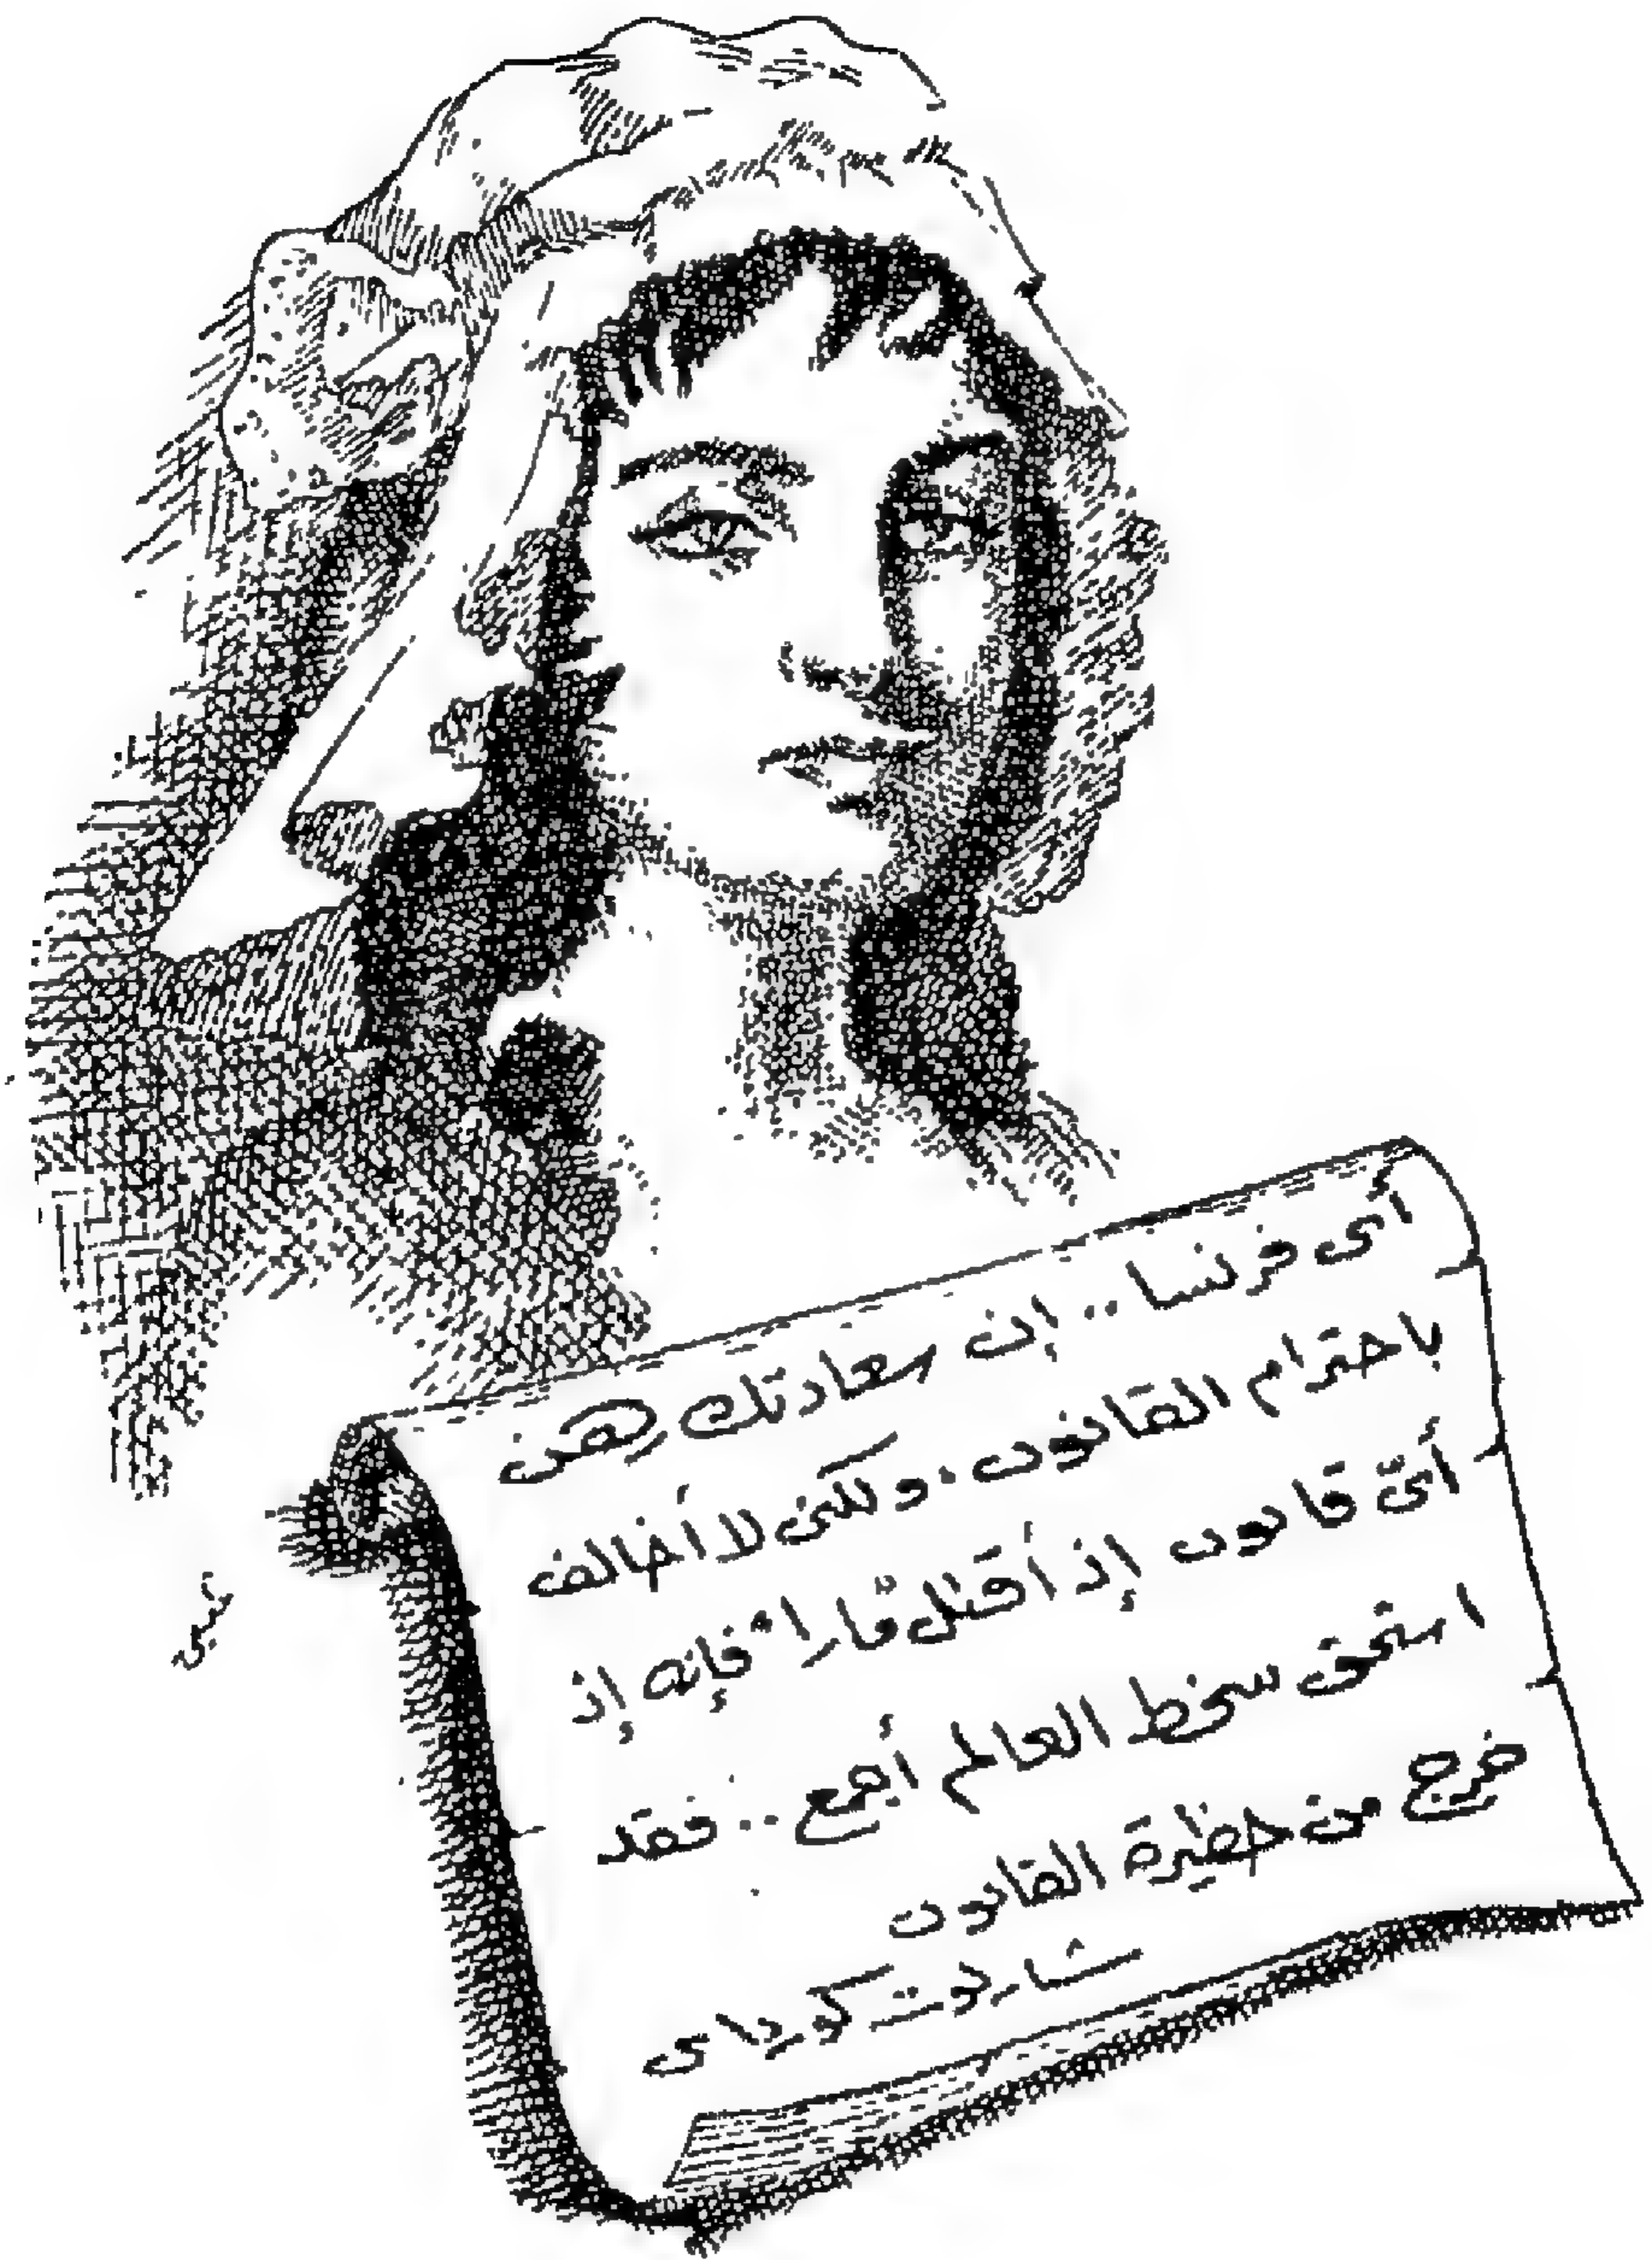 أى فرنسا .. إن سعادتك رهن
باحترام القانون . ولكنى لا أخالف
أىّ قانون إذ أقتل "مارا" فإنه إذ
استحق سخط العالم أجمع .. فقد
خرج من حظيرة القانون
شارلوت كورداى